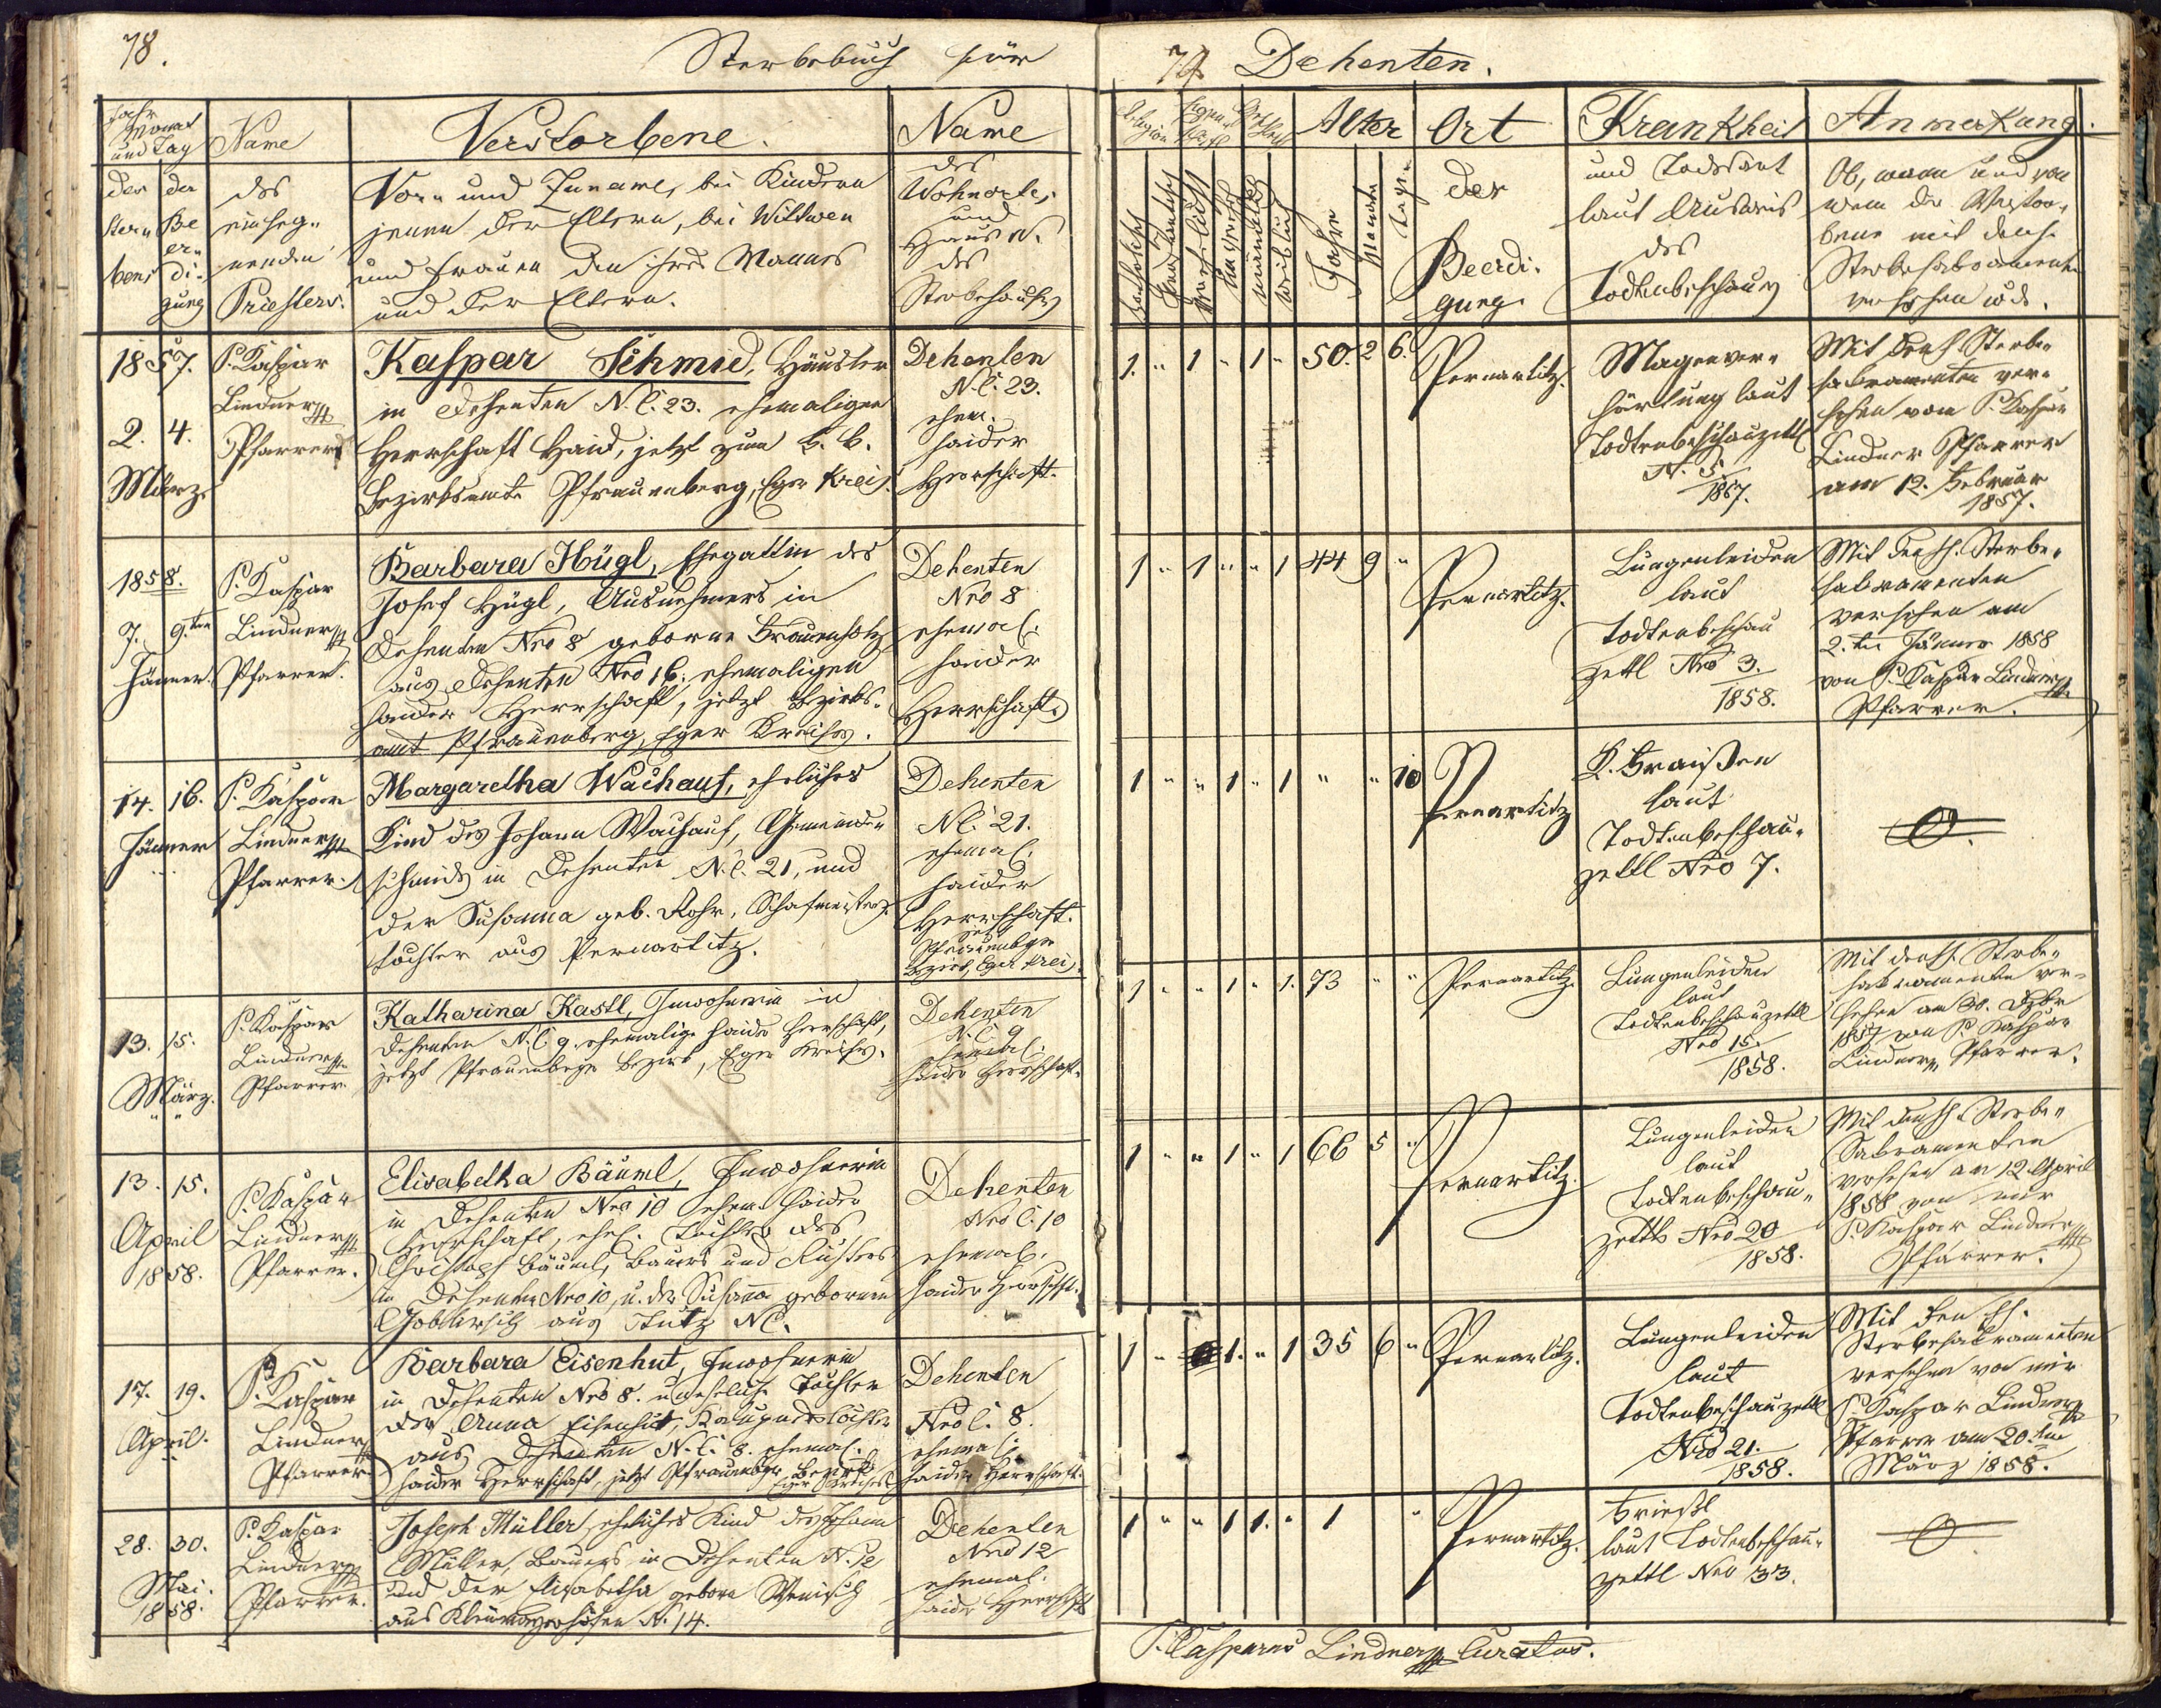 78.
Sterbebuch für
79 Dehenten.
Jahr
Monat
und Tag
des Sterbens
der Beerdigung
Name
des
einseg-
nenden
Priesters.
Verstorbene.
Vor- und Zuname, bei Kindern
jenen der Eltern, bei Wittwen
und Frauen den ihres Mannes
und der Eltern.
Name
des
Wohnortes
und
Haus N.
des
Sterbehauses
Religion
katholisch
Geschlecht
männlich
weiblich
Alter
Jahre
Monate
Tage
Ort
der
Beerdi-
gung.
Krankheit
und Todesart
laut Ausweis
des
Todtenbeschauers
Anmerkung.
Ob, wann und von
wem der Verstor-
bene mit den h.
Sterbesakramenten
versehen wurde.
1857.
2. 4.
März.
P. Kaspar
Lindner
Pfarrer
Kaspar Schmid, Häusler
in Dehenten N. C. 23. ehemaligen
Herrschaft Haid, jetzt zum k. k.
Bezirksamte Pfraumberg, Eger Kreis.
Dehenten
N. C. 23.
ehem.
Haider
Herrschaft.
1. " 1 " 1 " 50. 2 6.
Pernartitz.
Magenver-
härtung laut
Todtenbeschauzettl
N. 5.
1857.
Mit den h. Sterbe-
sakramenten ver-
sehen vom P. Kaspar
Lindner Pfarrer
am 12. Februar
1857.
1858.
7. 9.ten
Jänner.
P. Kaspar
Lindner
Pfarrer.
Barbara Hügl, Ehegattin des
Josef Hügl, Ausnehmers in
Dehenten Nro 8 geborne
aus Dehenten Nro 16. ehemaligen
Haider Herrschaft, jetzt Bezirks-
amt Pfraumberg, Eger Kreises.
Dehenten
Nro 8
ehemal.
Haider
Herrschaft.
1 " 1 " " 1 44 9 "
Pernartitz.
Lungenleiden
laut
Todtenbeschau
zettl Nro 3.
1858.
Mit den hh. Sterbe-
sakramenten
versehen am
2.ten Jänner 1858
von P. Kaspar Lindner
Pfarrer.
14. 16.
Jänner
P. Kaspar
Lindner
Pfarrer.
Margaretha Wachauf, eheliches
Kind des Johann Wachauf, Gemeinde-
schmids in Dehenten N. C. 21, und
der Susanna geb. Rohr, Schafmeisters-
tochter aus Pernartitz.
Dehenten
N C. 21.
ehemal.
Haider
Herrschaft.
jetzt
Pfraumbger
Bezirk, Eger Kreis.
1 " " 1 " 1 " " 10
Pernartitz
K. Fraißen
laut
Todtenbeschau-
zettl Nro 7.
13. 15.
März.
P. Kaspar
Lindner
Pfarrer.
Katharina Kastl, Inwohnerin in
Dehenten N. C. 9. ehemalige Haider Herrschaft,
jetzt Pfraumbger Bezirk, Eger Kreises.
Dehenten
N. C. 9
ehemal.
Haider Herrschaft.
1 " " 1 " 1. 73 " "
Pernartitz.
Lungenleiden
laut
Todtenbeschauzettl
Nro 15.
1858.
Mit den h. Sterbe-
sakramenten ver-
sehen am 30. Dzbr
1857 von P. Kaspar
Lindner Pfarrer.
13. 15.
April
1858.
P. Kaspar
Lindner
Pfarrer.
Elisabetha Bäuml, Inwohnerin
in Dehenten Nro 10 ehem. Haider
Herrschaft, ehel. Tochter des
Christoph Bäuml, Bauers und
in Dehenten Nro 10, u. der Susanna gebornen
aus Stutz N C.
Dehenten
Nro C. 10
ehemal.
Haider Herrschft.
1 " " 1 " 1 66 5 "
Pernartitz.
Lungenleiden
laut
Todtenbeschau-
zettls Nro 20
1858.
Mit den hh. Sterbe-
Sakramenten
versehen am 12. April
1858 von mir
P. Kaspar Lindner
Pfarrer.
17. 19.
April.
P. Kaspar
Lindner
Pfarrer
Barbara Eisenhut, Inwohnerin
in Dehenten Nro 8. uneheliche Tochter
der Anna Eisenhut,
aus Dehenten N. C. 8. ehemal.
Haider Herrschaft, jetzt Pfraumbger Bezirk
Eger Kreises
Dehenten
Nro C. 8.
ehemal.
Haider Herrschaft.
1 " 1. " 1 35 6 "
Pernartitz.
Lungenleiden
laut
Todtenbeschauzettl
Nro 21.
1858.
Mit den hh.
Sterbesakramenten
versehen von mir
P. Kaspar Lindner
Pfarrer am 20.ten
März 1858.
28. 30.
Mai.
1858.
P. Kaspar
Lindner
Pfarrer.
Joseph Müller, eheliches Kind des Johann
Müller, Bauers in Dehenten N. 12
und der Elisabetha geborn Wenisch
aus N. 14.
Dehenten
Nro 12
ehemal.
Haider Herrschft
1 " " 1 1. " 1 "
Pernartitz.
Frieß
laut Todtenbeschau-
zettl Nro 33.
P. Casparus Lindner Curatus.